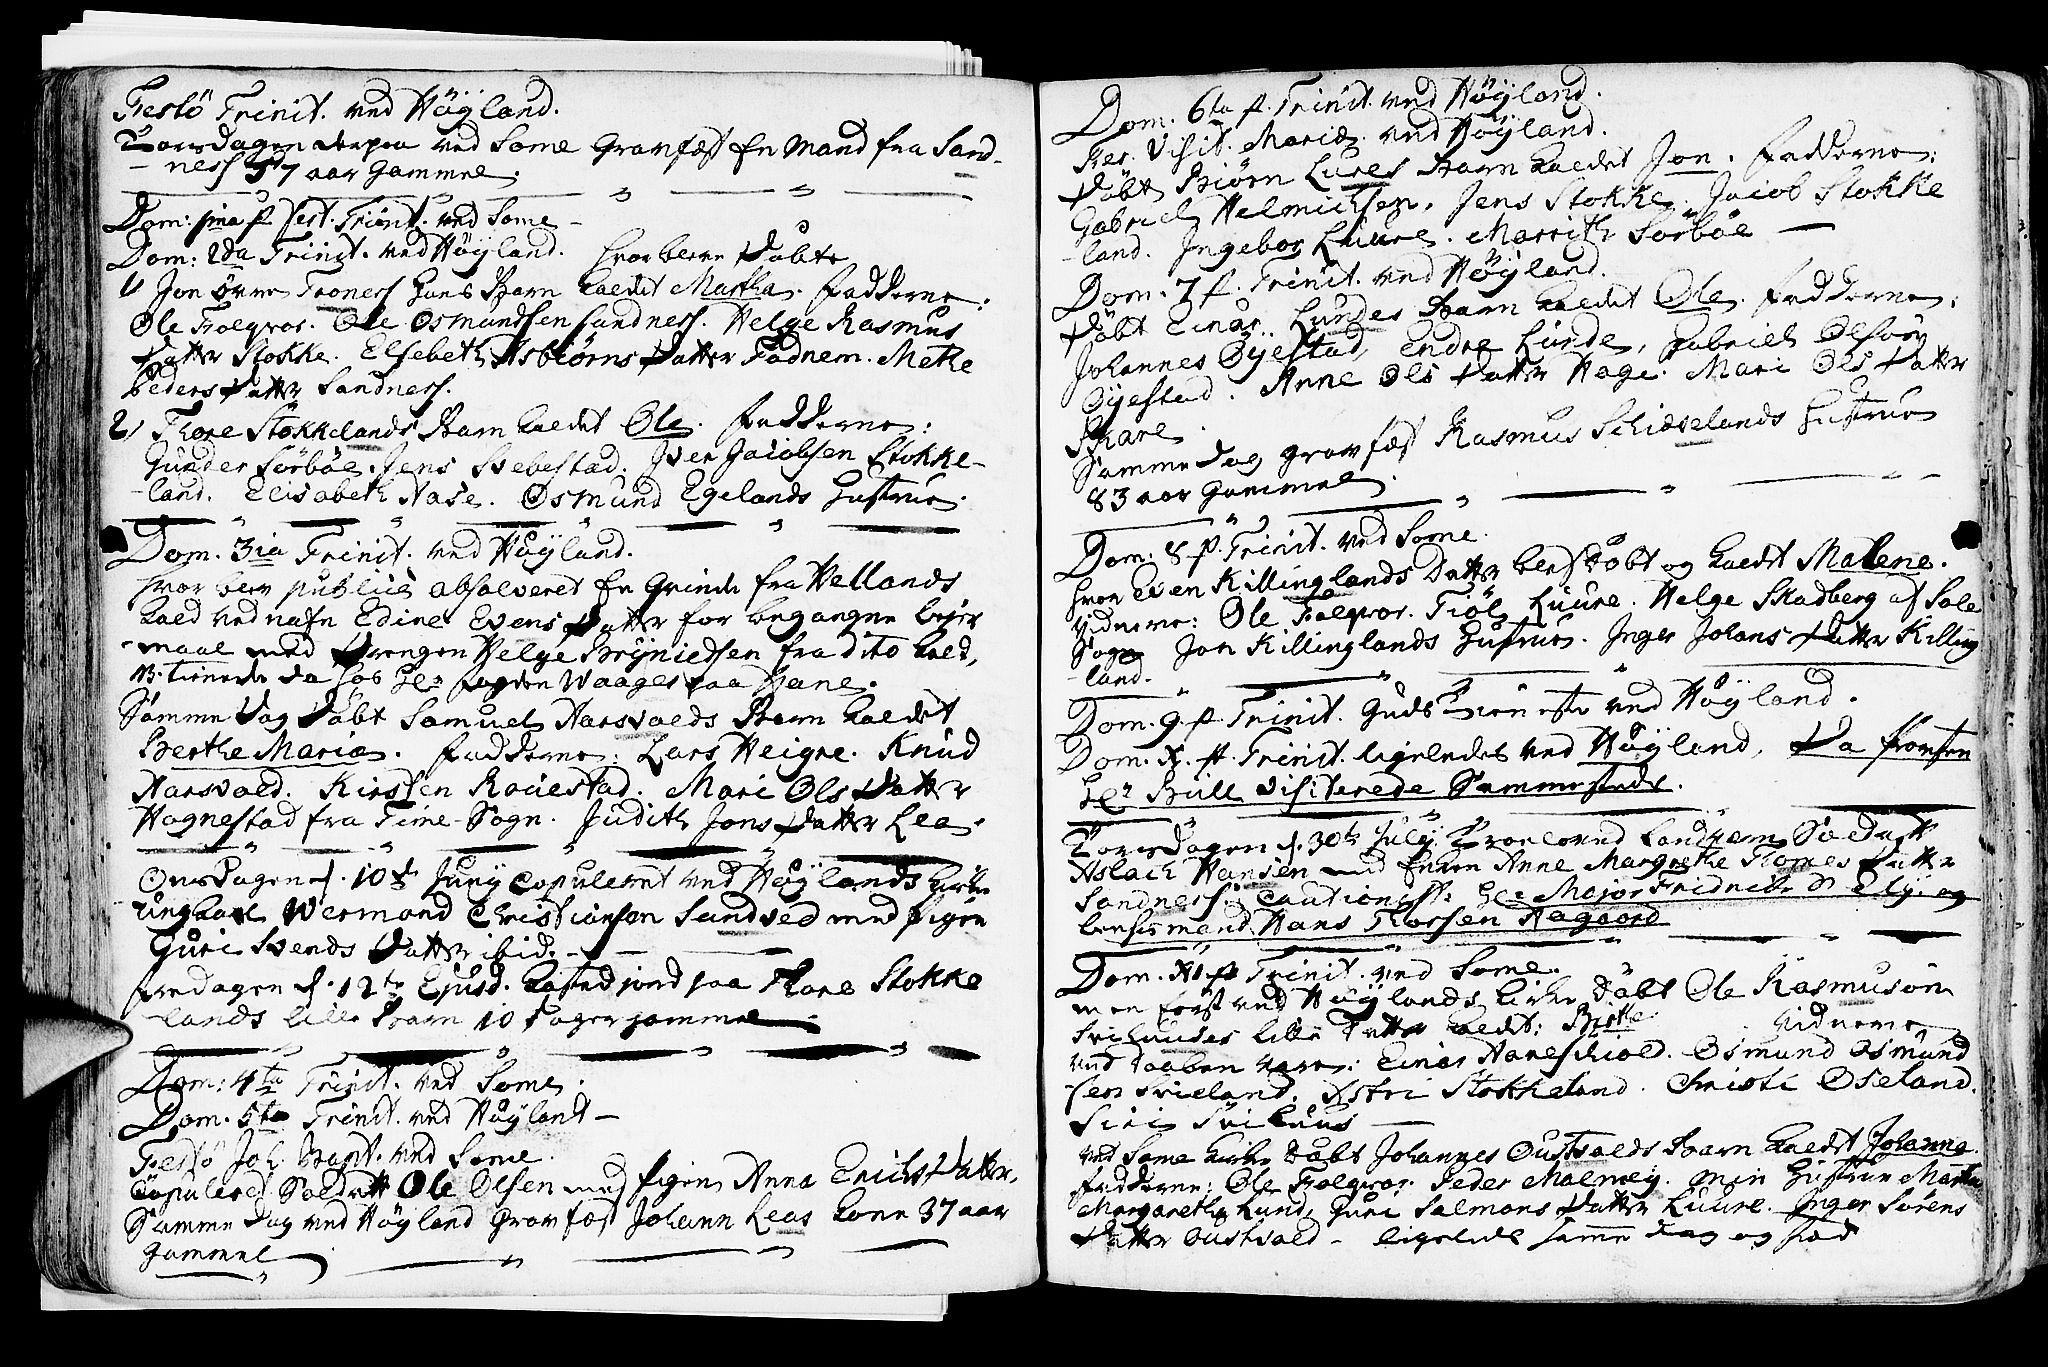 Festô Trinit. ved Höyland.
Torsdagen derpaa ved Some Gravfæst En Mand fra Sand-
-ness 57 aar Gammel.
Dom: 1ma p. fest. Trinit. ved Some -
Dom: 2da Trinit. ved Höyland. hvor bleve Döbte
1) Jon Trones Hans Barn kaldet Martha. Fadderne:
Ole Folqvor. Ole Osmundsen Sandness. Helge Rasmus
Datter Stokke. Elsebeth Asbiörns Datter Fadnem. Methe
Peders Datter Sandness.
2) Thore Stokkelands Barn kaldet Ole. Fadderne:
Gunder Sörböe. Jens Svebestad. Iver Jacobsen Stokke-
-land. Elisabeth Aase. Osmund Egelands Hustrue.
Dom. 3ia Trinit. ved Höyland.
hvor blev publicè absolveret En Qvinde fra Hellands
kald ved nafn Edine Evens Datter for begangne lejer
-maal med Drengen Helge Brynieldsen fra dito kald,
tienende da hos Hr Waages paa Jane.
Samme Dag Döbt Samuel Aarsvolds Barn kaldet
Berthe Maria. Fadderne: Lars Heigre. Knud
Aarsvold. Kirsten Rouestad. Mari Ols Datter
Hognestad fra Time-Sogn. Judith Jons Datter Lea.
Onsdagen d. 10de Juny Copuleret ved Höylands kirke
Ungkarl Wermond Christiansen Sandved med Pigen
Guri Svends Datter ibid. -
Fredagen d. 12te Ejusd. kasted jord paa Thore Stokke
-lands lille Barn 10 Dager gammel
Dom: 4ta Trinit. ved Some.
Dom. 5ta Trinit. ved Höyland -
Festô Joh. Bapt. ved Some.
Copuleret Soldatt Ole Olsen med Pigen Anna Erichs Datter.
Samme Dag ved Höyland Gravfæst Johann Leas kone 37 aar
Gammel
Dom. 6ta p. Trinit. ved Höyland.
Fer. Visit. Mariæ. ved Höyland.
Döbt Biörn Lures Barn kaldet Jon. Fadderne:
Gabriel Helmichsen, Jens Stokke. Jacob Stokke
-land. Ingebor Luure. Marrith Sörböe -
Dom. 7 p. Trinit. ved Höyland.
Döbt Einar Lundes Barn kaldet Ole. Fadderne:
Johannes Öyestad, Endre Lunde, Gabriel Olsön
Öyestad. Anne Ols Datter Hage. Mari Ols Datter
Skare.
Samme Dag gravfæst Rasmus Schiæselands Hustrue
83 aar Gammel.
Dom: 8 p. Trinit. ved Some.
hvor Even Killinglands Datter blef Döbt og kaldt Malene.
Vidnerne: Ole Folqvor. Tiöl Luure. Helge Skadberg af Sole
Sogn Jon Killinglands Hustrue. Inger Johans Datter Killing
-land.
Dom. 9. p. Trinit. Guds Tieneste ved Höyland.
Dom. X. p. Trinit. ligeledes ved Höyland, Da Provsten
Hr Büll visiterede Sammestæds.
Torsdagen d. 30te July Troeloved Landværn Soldatt
Aslach Hansen med Enken Anne Margrethe Thomes Datter
Sandness. Cautionist: Hr Major Fridrich og
lensmand Hans Thorsen Aagaard
Dom. XI p. Trinit. ved Some.
men först ved Höylands kirke Döbt Ole Rasmusön
Sviluudes lille Datter kaldt: Birthe. Vidnerne
ved Daaben vare: Einar Hanaschiold. Osmund Osmund
-sen Svieland. Astri Stokkeland. Christi Oseland.
Siri Sviluus -
ved Some kirke Döbt Johannes Oustvolds Barn kaldt Johanna.
Fadderne: Ole Folqvor. Peder Malmey. min Hustrue Martha
Margaretha Lund, Guri Salmons Datter Luure. Inger Sörens
Datter Oustvold - ligeledes samme Dag og stæd